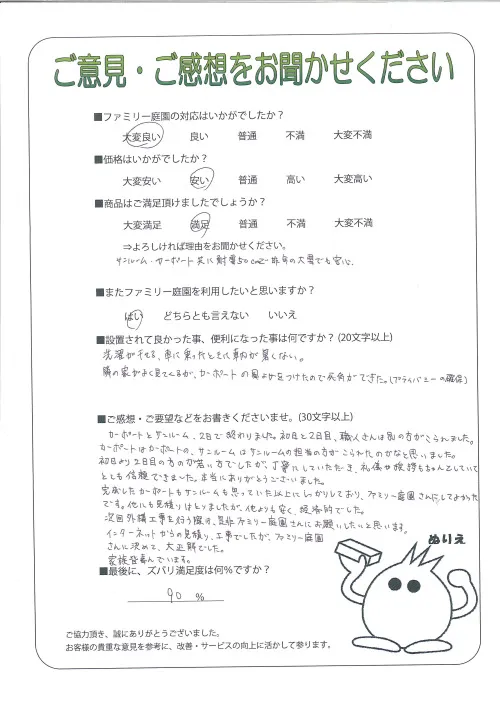 ご意見・ご感想をお聞かせください
■ファミリー庭園の対応はいかがでしたか？
大変良い 良い 普通 不満 大変不満
■価格はいかがでしたか？
大変安い 安い 普通 高い 大変高い
■商品はご満足頂けましたでしょうか？
大変満足 満足 普通 不満 大変不満
⇒よろしければ理由をお聞かせください。
サンルーム・カーポート共に耐雪50cmで昨年の大雪でも安心。
■またファミリー庭園を利用したいと思いますか？
はい どちらとも言えない いいえ
■設置されて良かった事、便利になった事は何ですか？(20文字以上)
洗濯が干せる、車に乗ったときに車内が暑くない。
隣の家がよく見えてくるが、カーポートの をつけたので死角ができた。(プライバシーの確保)
■ご感想・ご要望などをお書きくださいませ。(30文字以上)
カーポートとサンルーム、2日で終わりました。初日と2日目、職人さんは別の方がこられました。
カーポートはカーポートの、サンルームはサンルームの担当の方がこられたのかなと思いました。
初日より2日目の方のが若い方でしたが、丁寧にしていただき、礼儀や挨拶もちゃんとしていて
とても信頼できました。本当にありがとうございました。
完成したカーポートもサンルームも思っていた以上にしっかりしており、ファミリー庭園さんにしてよかった
です。他にも見積りはとりましたが、他よりも安く、経済的でした。
次回外構工事を行う際は、是非ファミリー庭園さんにお願いしたいと思います。
インターネットからの見積り、工事でしたが、ファミリー庭園
さんに決めて、大正解でした。
家族皆喜んでいます。
ぬりえ
■最後に、ズバリ満足度は何％ですか？
90 %
ご協力頂き、誠にありがとうございました。
お客様の貴重な意見を参考に、改善・サービスの向上に活かして参ります。